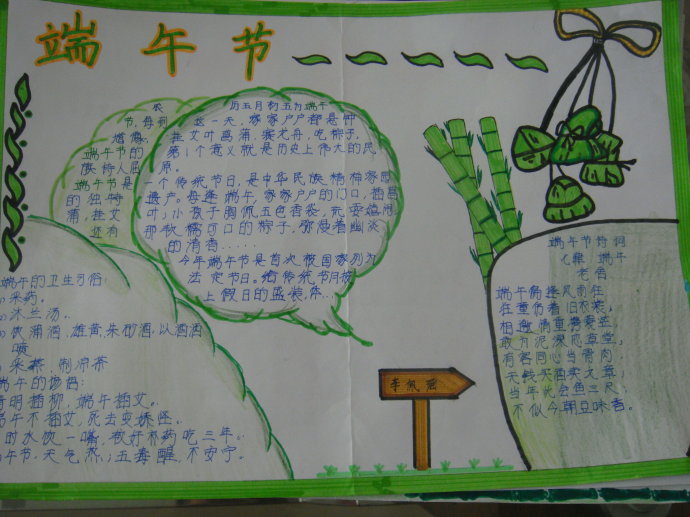 端午节
农 历五月初五为端午
节,每到 这一天,家家户户都悬钟
馗像,挂艾叶菖蒲,赛龙舟,吃粽子,
端午节的 第1个意义就是历史上伟大的民
族诗人屈 原。
端午节是 一个传统节日,是中华民族精神家园
的独特 遗产。每逢端午,家家户户的门口,插菖
蒲,挂艾 叶,小孩子胸佩五色香袋,
还有 那软糯可口的粽子,弥漫着幽淡
的清香……
今年端午节是首次被国家列为
法定节日。给传统节日披
上假日的盛装,
端午的卫生习俗:
采药。
沐兰汤。
饮蒲酒,雄黄,朱砂酒,以酒洒
喷
采茶,制凉茶
端午的谚语:
清明插柳,端午插艾。
午不插艾,死去变妖怪。
的水饮一嘴,较好补药吃三年。
午节,天气热;五毒醒,不安宁。
端午节诗词
七律 端午
老舍
端午偏逢风雨狂,
村童仍着旧衣裳,
相邀情重携蓑笠,
敢为泥深恋草堂,
有客同心当骨肉,
无钱买酒卖文章,
当年此会鱼三尺,
不似今朝豆味香。
李佩瑶